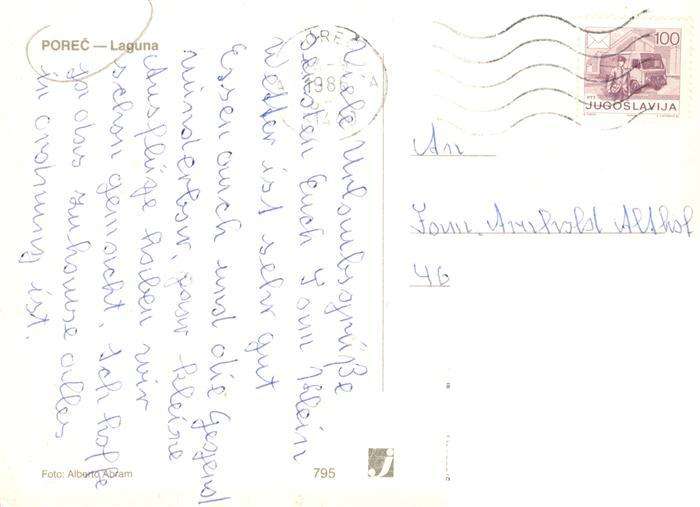 POREČ — Laguna
Viele Urlaubsgrüße
senden Euch Fam Klein
Wetter ist sehr gut
Essen auch und die Gegend
wunderbar, paar kleine
Ausflüge haben wir
schon gemacht. Ich hoffe
das zuhause alles
in ordnung ist.
Foto: Alberto Abram
795
100
JUGOSLAVIJA
An
Fam. Althof
46